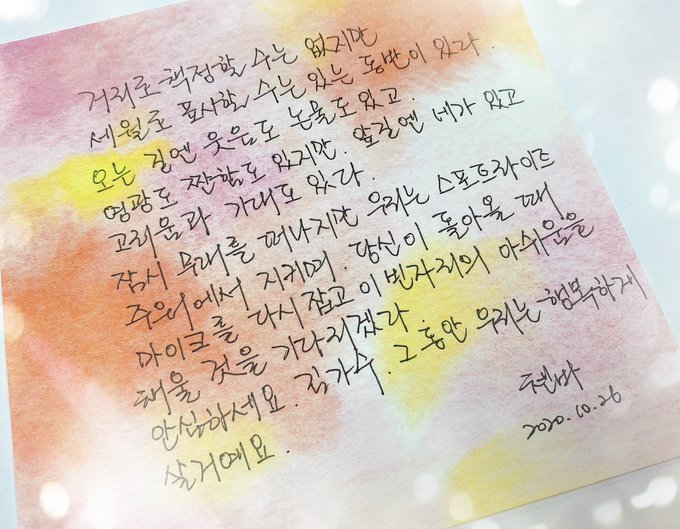 거리로 책정할 수는 없지만
세월로 묘사할 수는 있는 동반이 있다.
오는 길엔 웃음도 눈물도 있고.
영광도 짠함도 있지만. 앞길엔 네가 있고
그리움과 기대도 있다.
잠시 무대를 떠나지만 우리는 스포트라이트
주위에서 지키며. 당신이 돌아올 때
마이크를 다시 잡고 이 빈자리의 아쉬움을
채울 것을 기다리겠다.
안심하세요. 김가수. 그동안 우리는 행복하게
살거예요.
2020.10.26